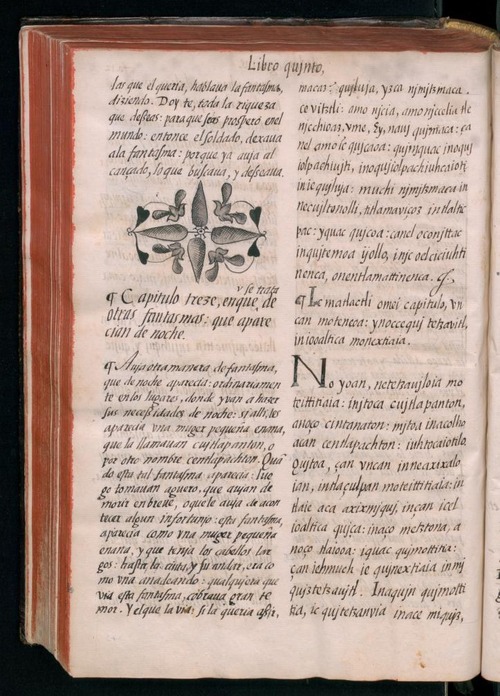 Libro qujnto,
las que el queria, hablaua la fantasma,
diziendo. Doy te, toda la riqueza
que desseas: para que seas prospero enel
mundo: entonce el soldado, dexaua
ala fantasma: porque ya auja al
cançado, lo que buscaua, y desseaua.
¶ Capitulo treze, enque, se trata de
otras fantasmas: que apare
cian de noche.
¶ Auja otra manera de fantasma,
que de noche aparecia: ordinariamen
te en los lugares, donde yvan a hazer
sus necessidades de noche: si alli, les
aparecia vna muger pequeña enana,
que la llamauan cujtlapanton, o
por otro nombre centlapachton. Quã
do esta tal fantasma aparecia: lue
go tomauan aguero, que aujan de
morir en breue, o que le auja de acon
tecer algun infortunjo: esta fantasma,
aparecia como vna muger pequeña
enana, y que tenja los cabellos lar
gos: hasta la cinta, y su andar, era co
mo vna anadeando: qualqujera que
via esta fantasma, cobraua gran te
mor. Y el que la via: si la queria assir,
maca: qujlhuja, yzca njmjtzmaca.
ce vitztli: amo njcia, amo njccelia
njcchioaz, vme, Ey, nauj qujmaca: ça
nel amo ic qujcaoa: qujnjquac inoquj
in ie qujlhuja: muchi njmjtzmaca in
necujltonolli, intlamavicoz in tlaltic
pac: yquac qujcoa: ca nel oconjttac
inqujtemoa ijollo, injc ociciuhti
nenca, onentlamattinenca.
¶ Ic matlactli omei capitulo, vn
can moteneoa: ynoccequj tetzavitl,
in iooaltica monextiaia.
No yoan, netetzaujloia mo
teittitiaia: injtoca cujtlapanton,
anoço cintanaton: mjtoa inacolho
acan centlapachton: iuhtocaiotilo.
Oujtoa, çan vncan inneaxixalo
ian, intlaçulpan moteittitiaia: in
tlaie aca axixmjquj, inçan icel
iooaltica qujça: inaço metztona, a
noço tlaiooa: iquac qujmottitia:
çan iehmuch ic qujnextiaia in mj
qujztetzaujtl. Inaqujn qujmotti
tia, ic qujtetzanvia inace mjqujz,